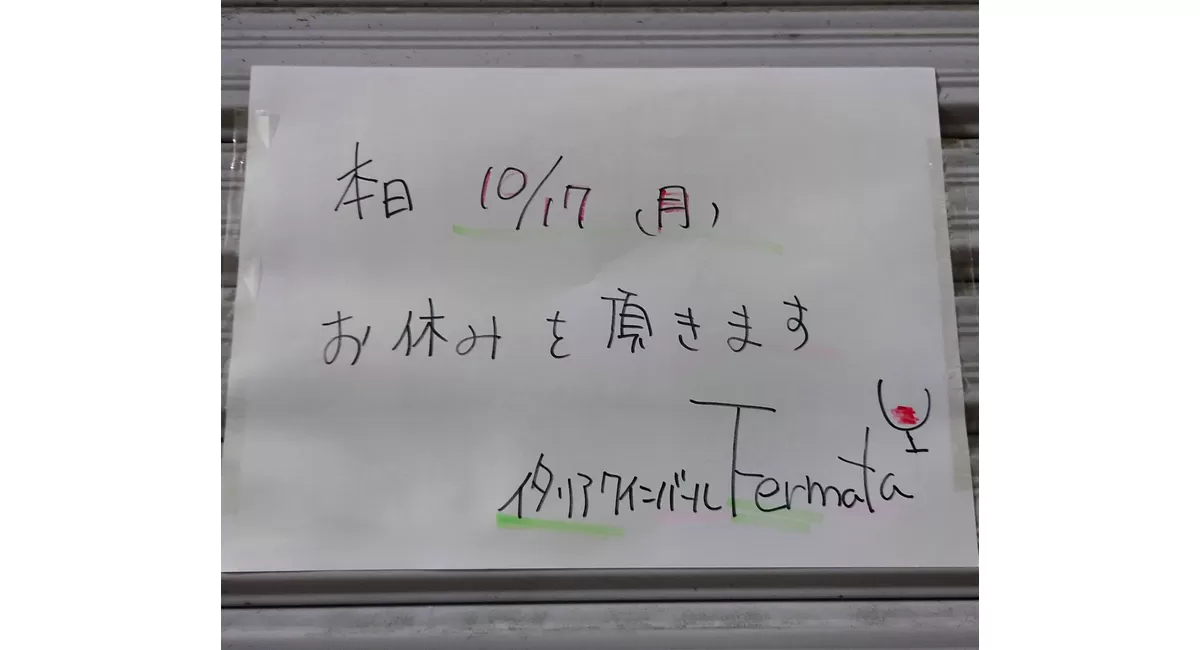 本日 10/17 (月)
お休みを頂きます
イタリアワインバール Fermata